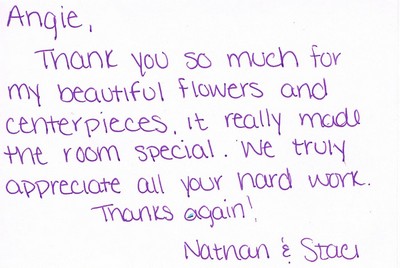 Angie,
Thank you so much for
my beautiful flowers and
centerpieces, it really made
the room special. We truly
appreciate all your hard work.
Thanks again!
Nathan & Staci